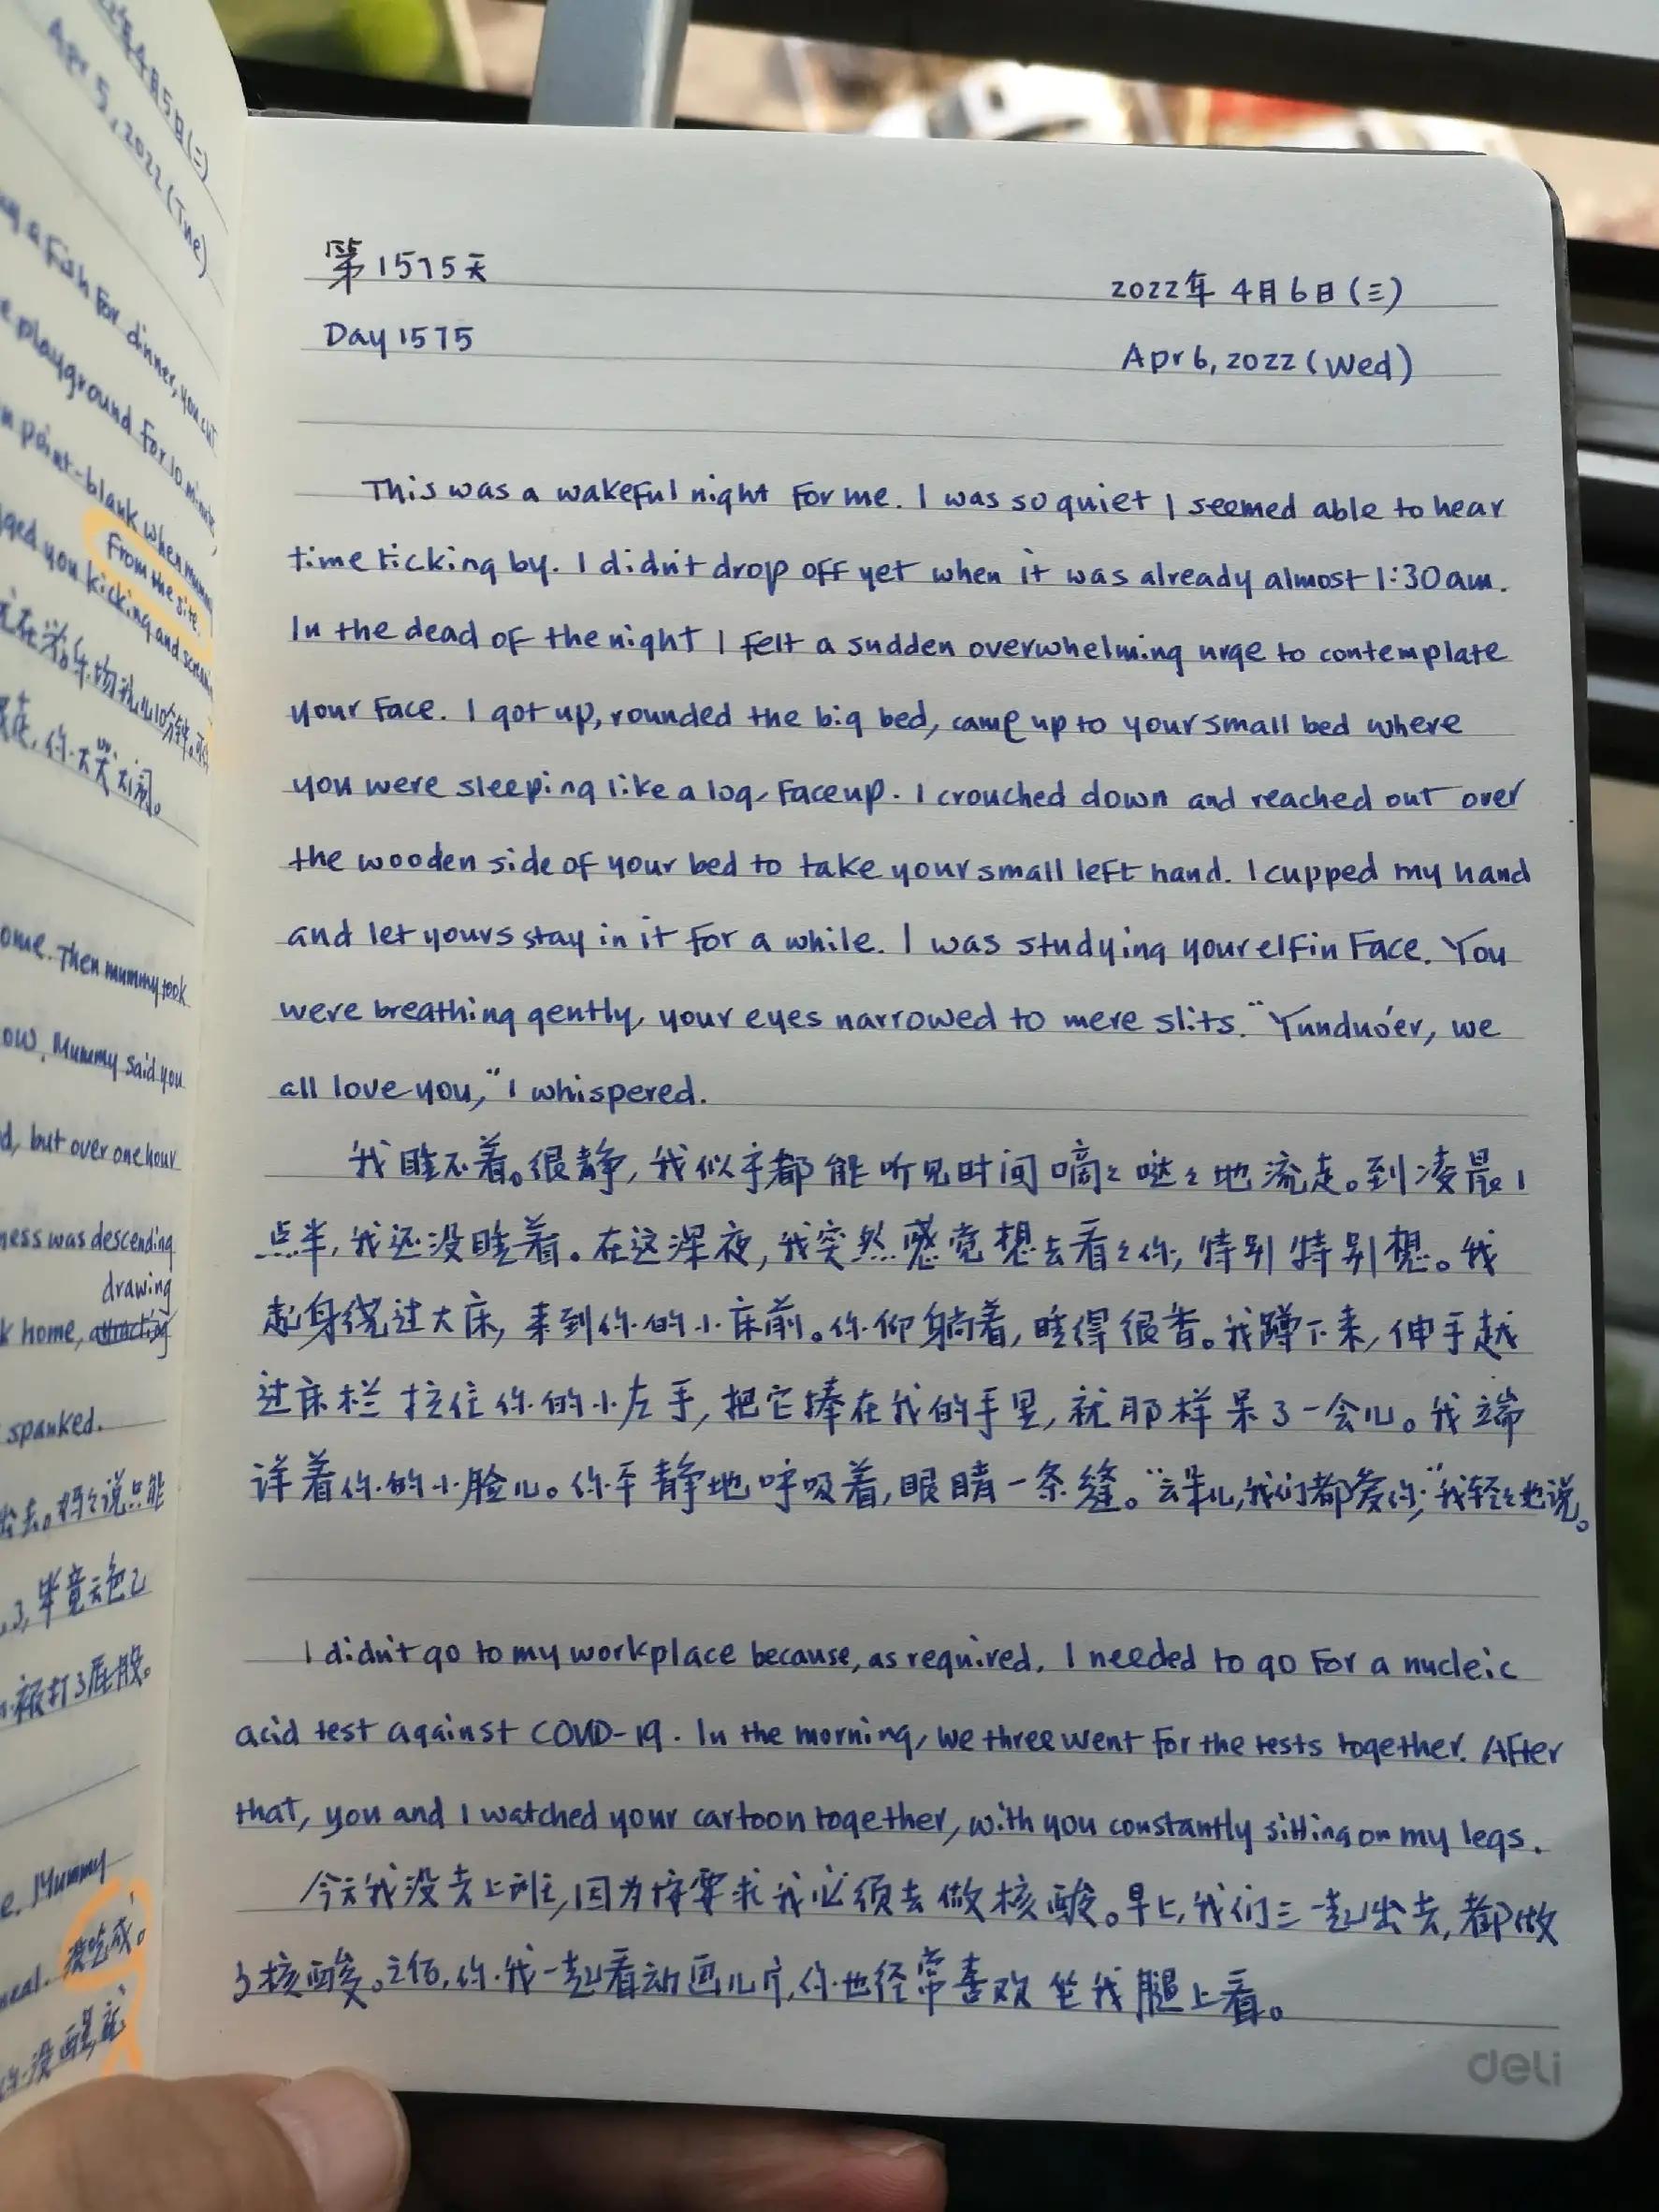 年4月5日(二)
Apr 5, 2022 (Tue)
a fish for dinner, you
playground for 10
point-blank when
From the site.
you kicking and
你大哭大闹。
ome. Then mummy took
ow. Mummy said you
d, but over one hour
ness was descending
drawing
k home,
spanked.
去。妈々说只能
了,毕竟
被打了屁股。
e. Mummy
neal.
第1575天
2022年4月6日(三)
Day 1575
Apr 6, 2022 (Wed)
This was a wakeful night for me. I was so quiet I seemed able to hear
time ticking by. I didn't drop off yet when it was already almost 1:30 am.
In the dead of the night I felt a sudden overwhelming urge to contemplate
your face. I got up, rounded the big bed, came up to your small bed where
you were sleeping like a log, faceup. I crouched down and reached out over
the wooden side of your bed to take your small left hand. I cupped my hand
and let yours stay in it for a while. I was studying your elfin face. You
were breathing gently, your eyes narrowed to mere slits. "Yunduo'er, we
all love you," I whispered.
我睡不着。很静,我似乎都能听见时间嘀々哒々地流走。到凌晨1
点半,我还没睡着。在这深夜,我突然感觉想去看々你,特别特别想。我
起身绕过大床,来到你的小床前。你仰躺着,睡得很香。我蹲下来,伸手越
过床栏拉住你的小左手,把它捧在我的手里,就那样呆了一会儿。我端
详着你的小脸儿。你平静地呼吸着,眼睛一条缝。"云朵儿,我们都爱你,"我轻々地说。
I didn't go to my workplace because, as required, I needed to go for a nucleic
acid test against COVID-19. In the morning, we three went for the tests together. After
that, you and I watched your cartoon together, with you constantly sitting on my legs.
今天我没去上班,因为按要求我必须去做核酸。早上,我们三一起出去,都做
了核酸。之后,你我一起看动画儿片,你也经常喜欢坐我腿上看。
deli